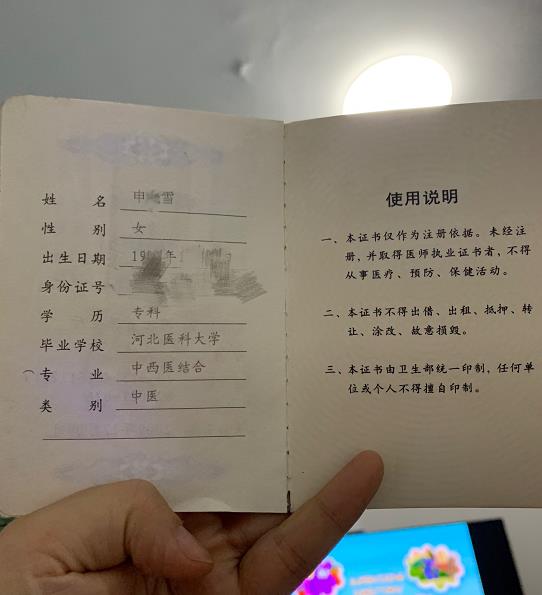 姓名 申 雪
性别 女
出生日期 19 年
身份证号
学历 专科
毕业学校 河北医科大学
专业 中西医结合
类别 中医
使用说明
一、本证书仅作为注册依据。未经注
册,并取得医师执业证书者,不得
从事医疗、预防、保健活动。
二、本证书不得出借、出租、抵押、转
让、涂改、故意损毁。
三、本证书由卫生部统一印制,任何单
位或个人不得擅自印制。